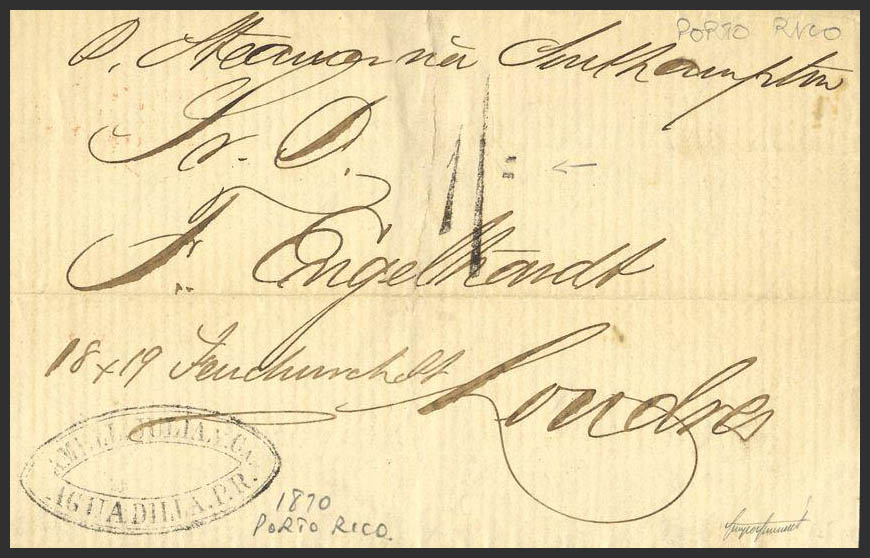 PORTO RICO
P. Steamer via Southampton
Sr. D.
F. Engelhardt
18 x 19 Fenchurch St
Londres
JULIA Y CA
AGUADILLA. P.R.
1870
PORTO RICO.